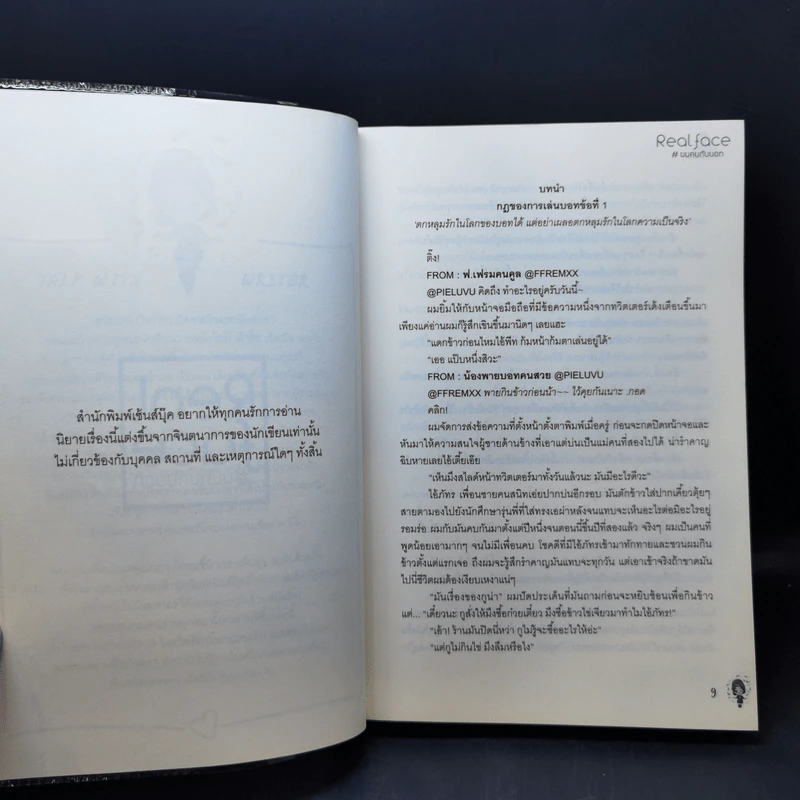 สำนักพิมพ์เซ้นส์บุ๊ค อยากให้ทุกคนรักการอ่าน
นิยายเรื่องนี้แต่งขึ้นจากจินตนาการของนักเขียนเท่านั้น
ไม่เกี่ยวข้องกับบุคคล สถานที่ และเหตุการณ์ใดๆ ทั้งสิ้น
Real face
# ผมคบกับบอท
บทนำ
กฎของการเล่นบอทข้อที่ 1
'ตกหลุมรักในโลกของบอทได้ แต่อย่าเผลอตกหลุมรักในโลกความเป็นจริง'
ติ๊ง!
FROM : ฟ.เฟรมคนคูล @FFREMXX
@PIELUVU คิดถึง ทำอะไรอยู่ครับวันนี้~
ผมยิ้มให้กับหน้าจอมือถือที่มีข้อความหนึ่งจากทวิตเตอร์เด้งเตือนขึ้นมา
เพียงแค่อ่านผมก็รู้สึกเขินขึ้นมานิดๆ เลยแฮะ
"แดกข้าวก่อนไหมไอ้พีท ก้มหน้าก้มตาเล่นอยู่ได้"
"เออ แป๊บหนึ่งสิวะ"
FROM : น้องพายบอทคนสวย @PIELUVU
@FFREMXX พายกินข้าวก่อนน้า~~ ไว้คุยกันเนาะ .กอด
คลิก!
ผมจัดการส่งข้อความที่ตั้งหน้าตั้งตาพิมพ์เมื่อครู่ ก่อนจะกดปิดหน้าจอและ
หันมาให้ความสนใจผู้ชายด้านข้างที่เอาแต่บ่นเป็นแม่คนที่สองไปได้ น่ารำคาญ
ฉิบหายเลยไอ้เตี้ยเอ๊ย
"เห็นมึงสไลด์หน้าทวิตเตอร์มาทั้งวันแล้วนะ มันมีอะไรดีวะ"
ไอ้ภัทร เพื่อนชายคนสนิทเอ่ยปากบ่นอีกรอบ มันตักข้าวใส่ปากเคี้ยวตุ้ยๆ
สายตามองไปยังนักศึกษารุ่นพี่ที่ใส่ทรงเอผ่าหลังจนแทบจะเห็นอะไรต่อมิอะไรอยู่
รอมร่อ ผมกับมันคบกันมาตั้งแต่ปีหนึ่งจนตอนนี้ขึ้นปีที่สองแล้ว จริงๆ ผมเป็นคนที่
พูดน้อยเอามากๆ จนไม่มีเพื่อนคบ โชคดีที่มีไอ้ภัทรเข้ามาทักทายและชวนผมกิน
ข้าวตั้งแต่แรกเจอ ถึงผมจะรู้สึกรำคาญมันแทบจะทุกวัน แต่เอาเข้าจริงถ้าขาดมัน
ไปนี่ชีวิตผมต้องเงียบเหงาแน่ๆ
"มันเรื่องของกูน่า" ผมปัดประเด็นที่มันถามก่อนจะหยิบช้อนเพื่อกินข้าว
แต่... "เดี๋ยวนะ กูสั่งให้มึงซื้อก๋วยเตี๋ยว มึงซื้อข้าวไข่เจียวมาทำไมไอ้ภัทร!"
"เอ้า! ร้านมันปิดนี่หว่า กูไม่รู้จะซื้ออะไรให้อ่ะ"
"แต่กูไม่กินไข่ มึงลืมหรือไง"
9